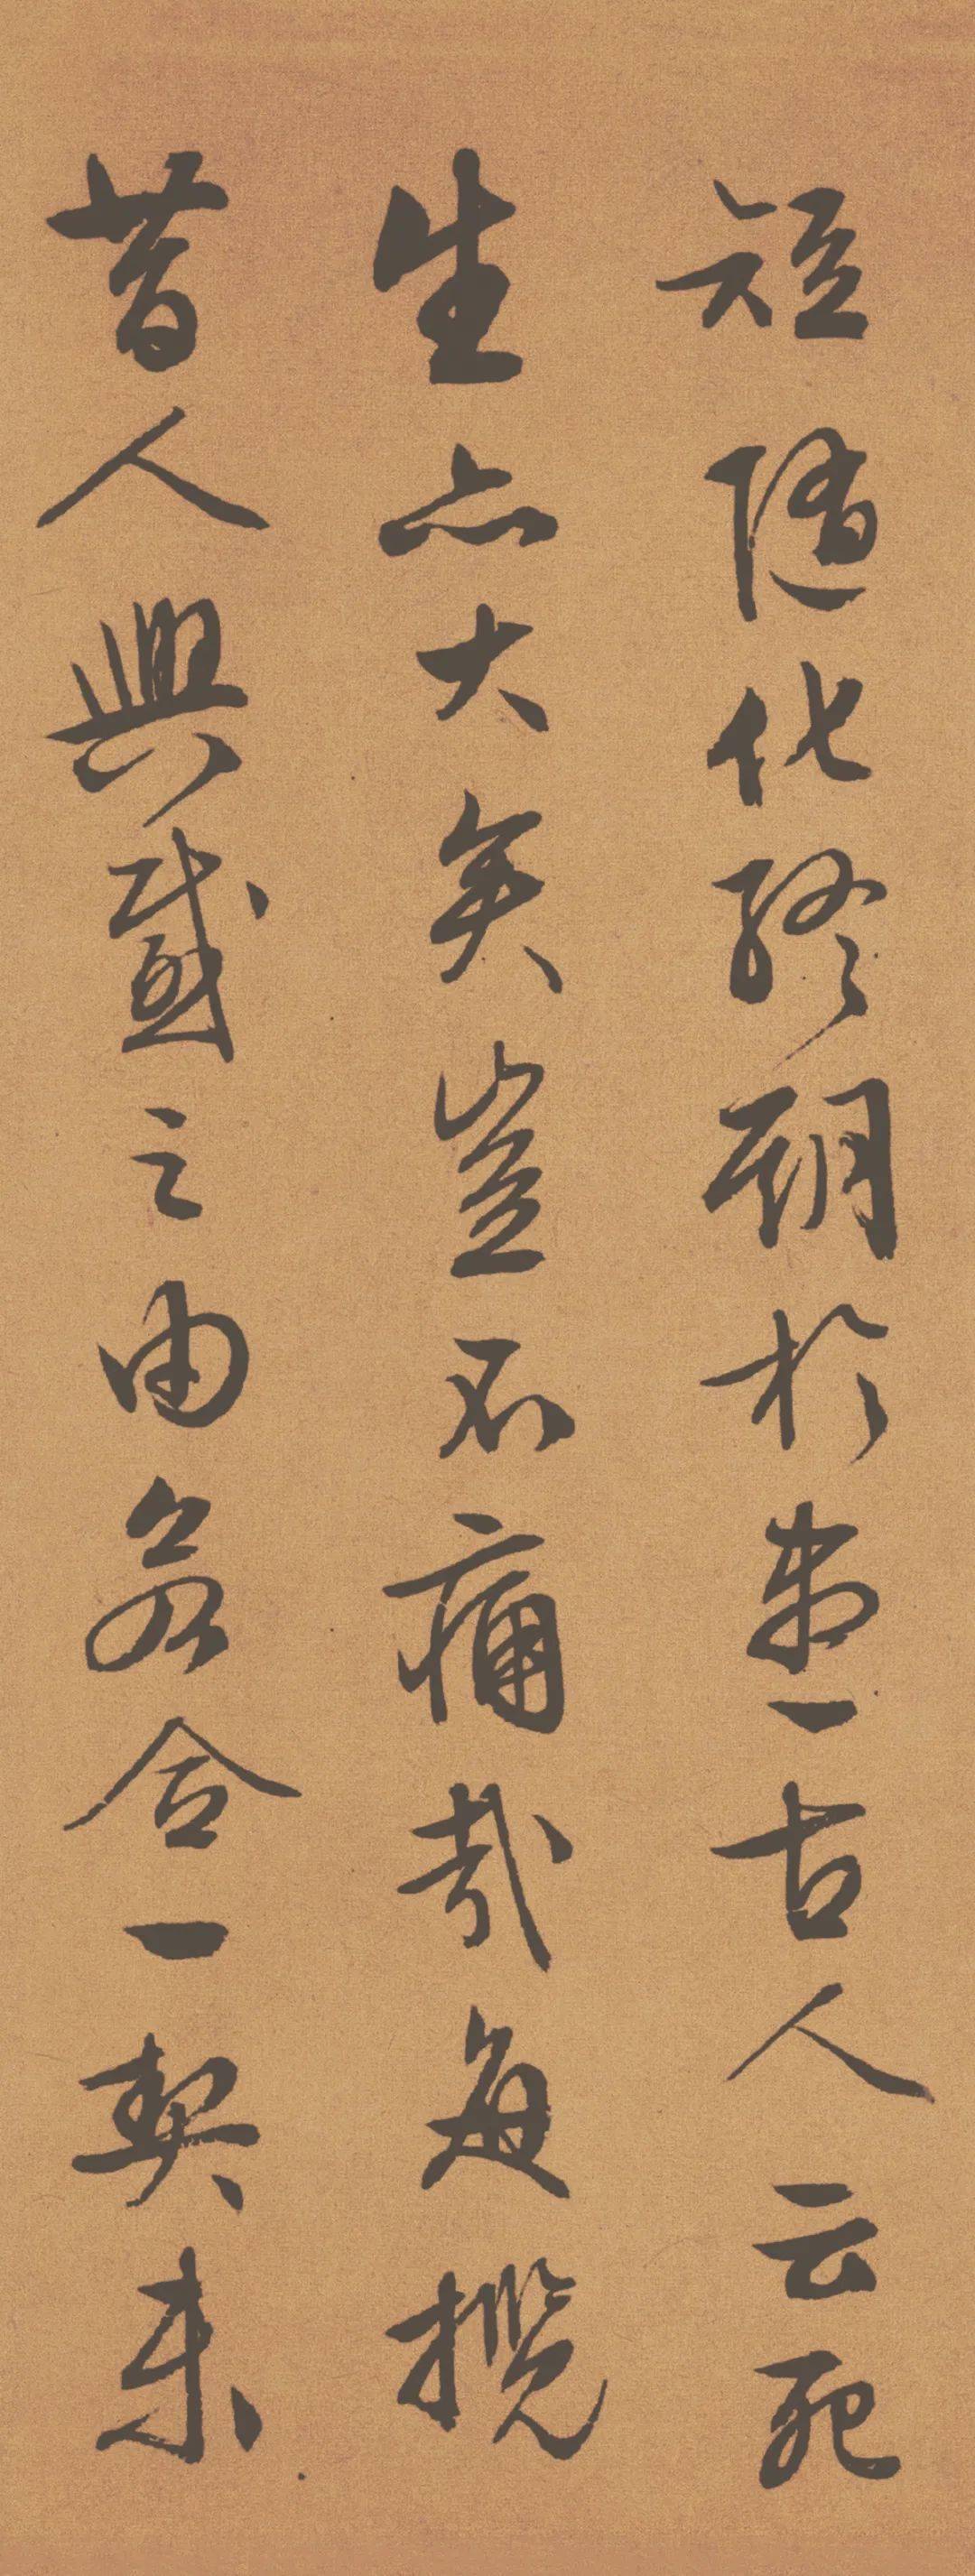 短隨化終期於盡古人云死
生亦大矣豈不痛哉每攬
昔人興感之由若合一契未